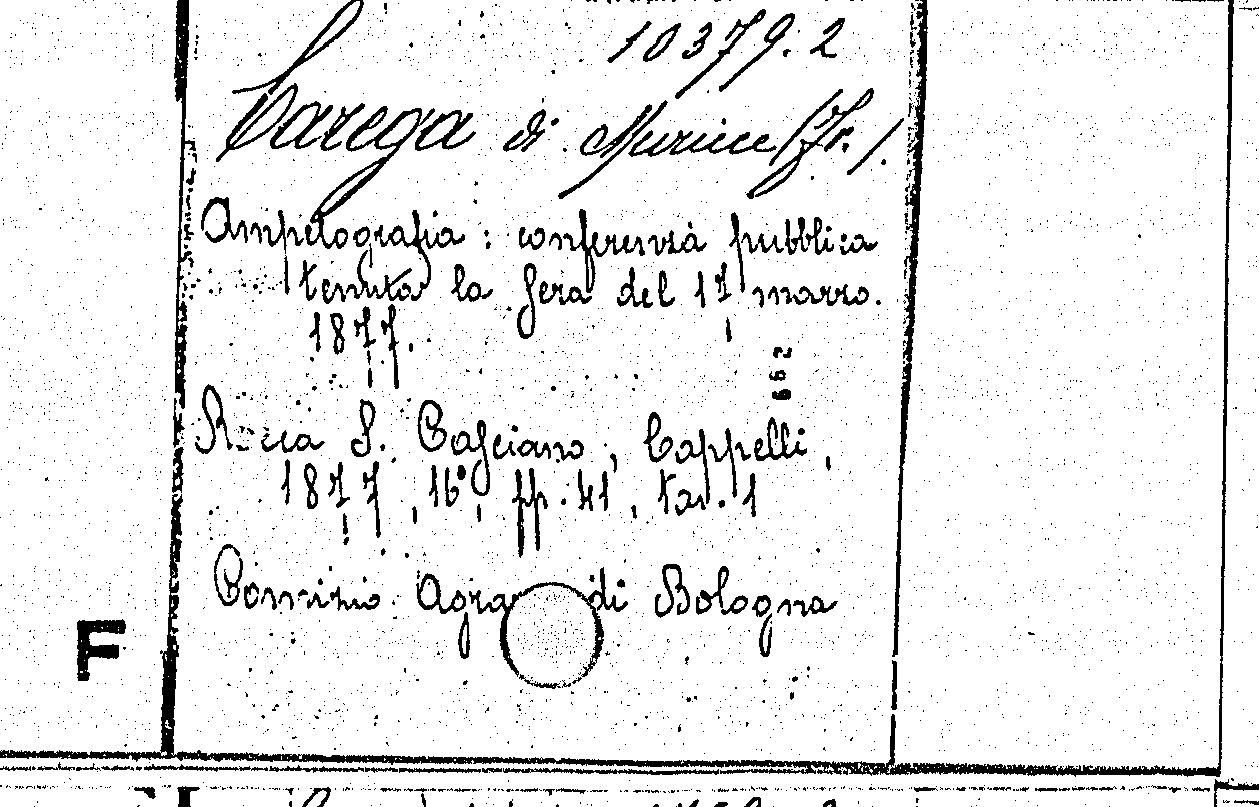 10379.2
Carega di Muricce (Fr.).
Ampelografia: conferenza pubblica
tenuta la sera del 17 marzo.
1877.
662
Rocca S. Casciano, Cappelli,
1877, 16°, pp. 41, tav. 1
Comizio Agra di Bologna
F